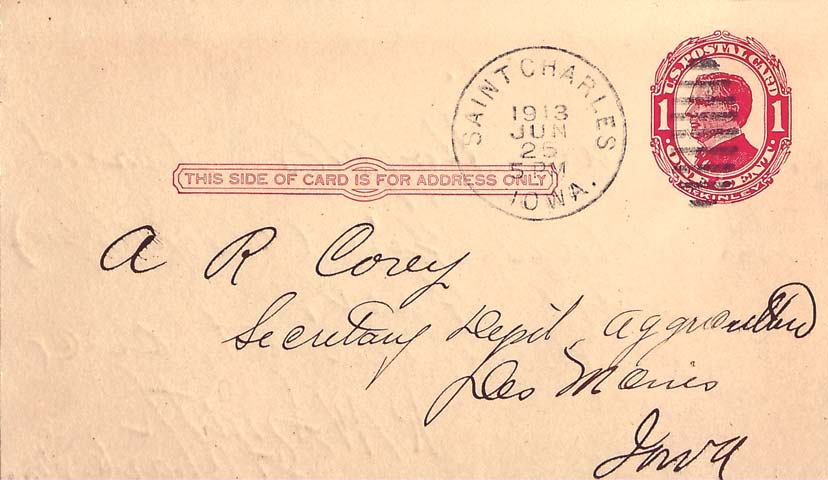 SAINT CHARLES
1913
JUN
25
5 PM
IOWA.
U.S. POSTAL CARD
1 1
ONE CENT
McKINLEY
THIS SIDE OF CARD IS FOR ADDRESS ONLY
A R Corey
Secretary Dept.
Des Moines
Iowa